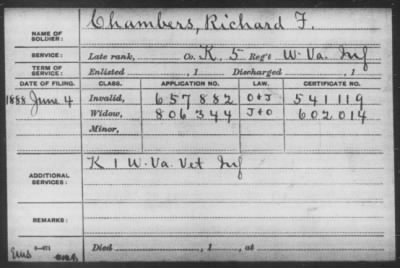 Chambers, Richard F.
NAME OF SOLDIER:
SERVICE: Late rank, Co. K, 5 Reg't W. Va. Inf
TERM OF SERVICE: Enlisted , 1 Discharged , 1
DATE OF FILING. CLASS. APPLICATION NO. LAW. CERTIFICATE NO.
1888 June 4 Invalid, 657882 O&J 541119
Widow, 806344 J&O 602014
Minor,
K 1 W. Va. Vet Inf
ADDITIONAL SERVICES:
REMARKS:
Died , 1 , at